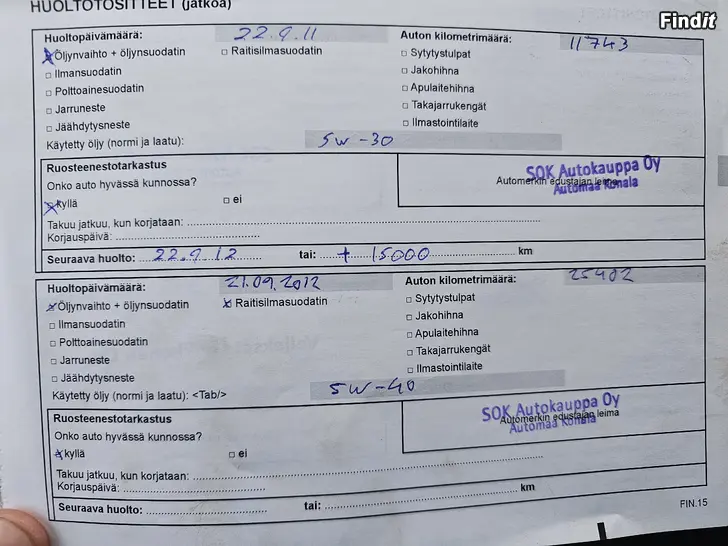 HUOLTOTOSITTEET (jatkoa)
Findit
Huoltopäivämäärä: 22.9.11 Auton kilometrimäärä: 11743
Öljynvaihto + öljynsuodatin Raitisilmasuodatin Sytytystulpat
Ilmansuodatin Jakohihna
Polttoainesuodatin Apulaitehihna
Jarruneste Takajarrukengät
Jäähdytysneste Ilmastointilaite
Käytetty öljy (normi ja laatu): 5W-30
Ruosteenestotarkastus
Onko auto hyvässä kunnossa?
SOK Autokauppa Oy
Automerkin edustajan leima
Automaa Konala
kyllä ei
Takuu jatkuu, kun korjataan:
Korjauspäivä:
Seuraava huolto: 22.9.12 tai: + 15000 km
Huoltopäivämäärä: 21.09.2012 Auton kilometrimäärä: 25402
Öljynvaihto + öljynsuodatin Raitisilmasuodatin Sytytystulpat
Ilmansuodatin Jakohihna
Polttoainesuodatin Apulaitehihna
Jarruneste Takajarrukengät
Jäähdytysneste Ilmastointilaite
Käytetty öljy (normi ja laatu): <Tab/> 5W-40
Ruosteenestotarkastus
Onko auto hyvässä kunnossa?
SOK Autokauppa Oy
Automerkin edustajan leima
Automaa Konala
kyllä ei
Takuu jatkuu, kun korjataan:
Korjauspäivä:
Seuraava huolto: tai: km
FIN.15